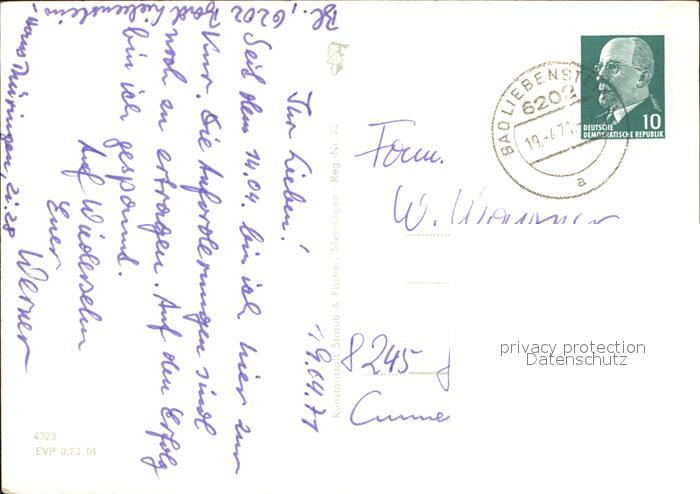 19.04.71
Ihr Lieben!
Seit dem 14.04. bin ich hier zur
Kur. Die Anforderungen sind
noch zu ertragen. Auf den Erfolg
bin ich gespannt.
Auf Wiedersehn
Euer Werner
6202 Bad Liebenstein
Haus Thüringen, Zi. 28
Kunstanstalt Straub & Fischer, Meiningen Reg.-Nr.
4323
EVP 0,20 M
BAD LIEBENST
6202
19.-4.71
a
DEUTSCHE
DEMOKRATISCHE REPUBLIK
10
Fam.
W.
8245
privacy protection
Datenschutz